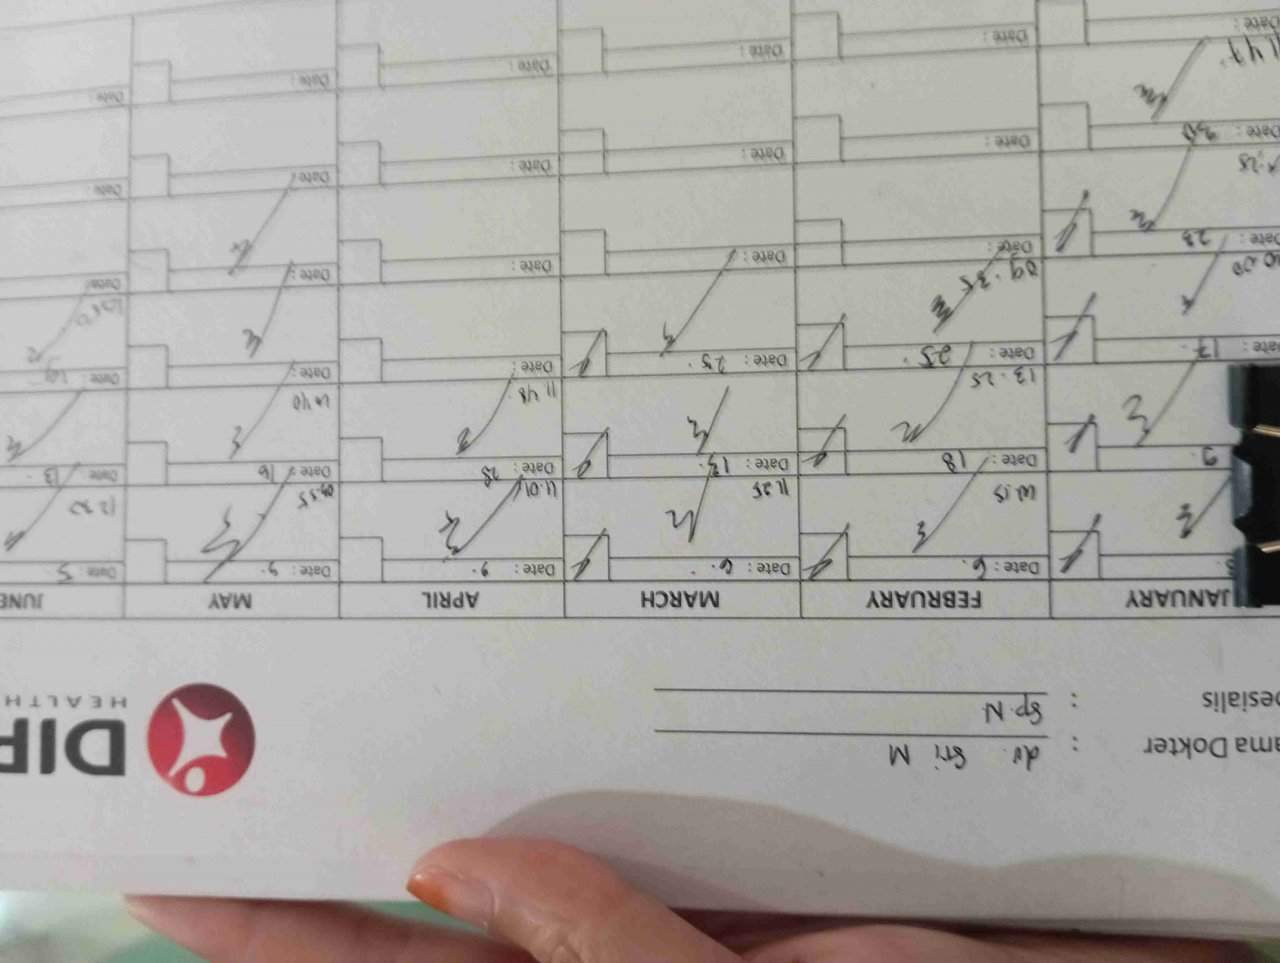 DIP
HEALTH
ama Dokter : dr. Sri M
esialis : Sp.N
JANUARY FEBRUARY MARCH APRIL MAY JUNE
Date: 6. Date: 6. Date: 9. Date: 9. Date: 5
10.15 11.25 11.01 09.55
9. Date: 18 Date: 13. Date: 28 Date: 16 Date: 13.
13.25 11.48 10.40
Date: 17. Date: 25. Date: 25. Date: Date: Date: 19
10.00 09.35
Date: 23 Date: Date: Date: Date: Date:
Date: 30 Date: Date: Date: Date: Date:
11.47
Date: Date: Date: Date: Date: Date: